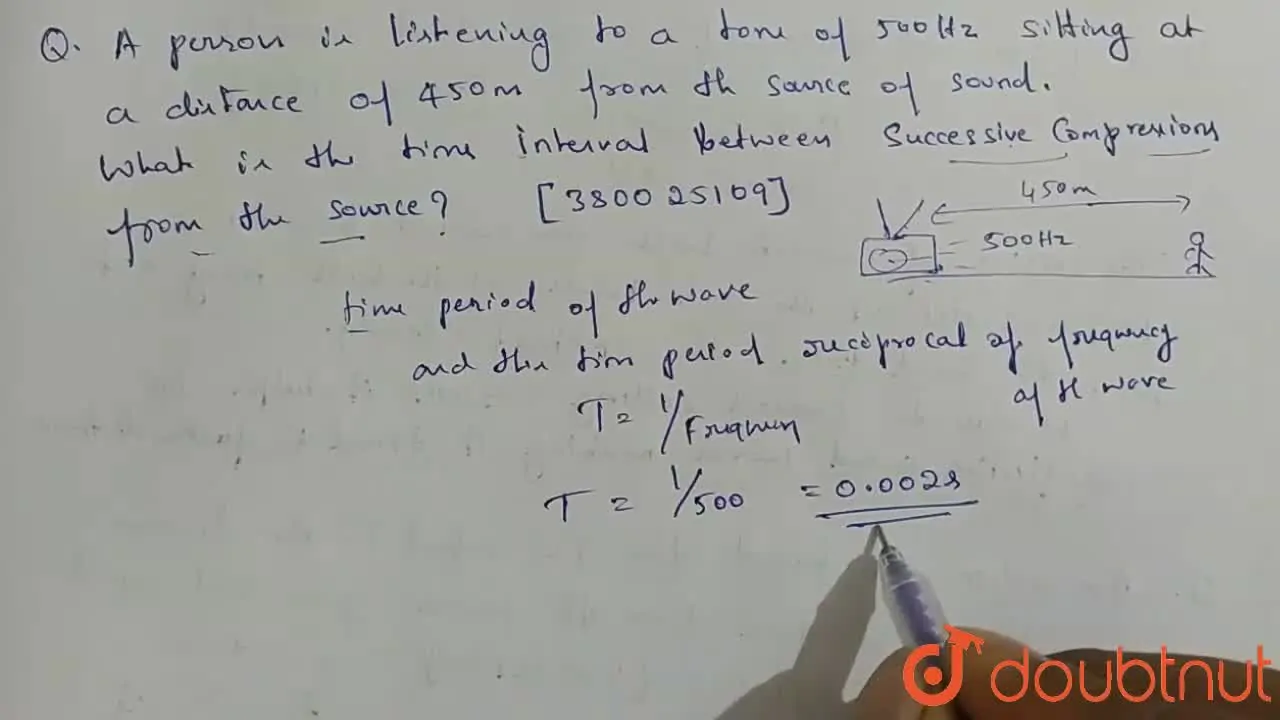 Q. A person is listening to a tone of 500Hz sitting at
a distance of 450m from th source of sound.
What is the time interval between Successive Compressions
from the source? [380025109]
450m
500Hz
time period of the wave
and the tim period reciprocal of frequency
of th wave
T = 1/Frequency
T = 1/500 = 0.002s
doubtnut